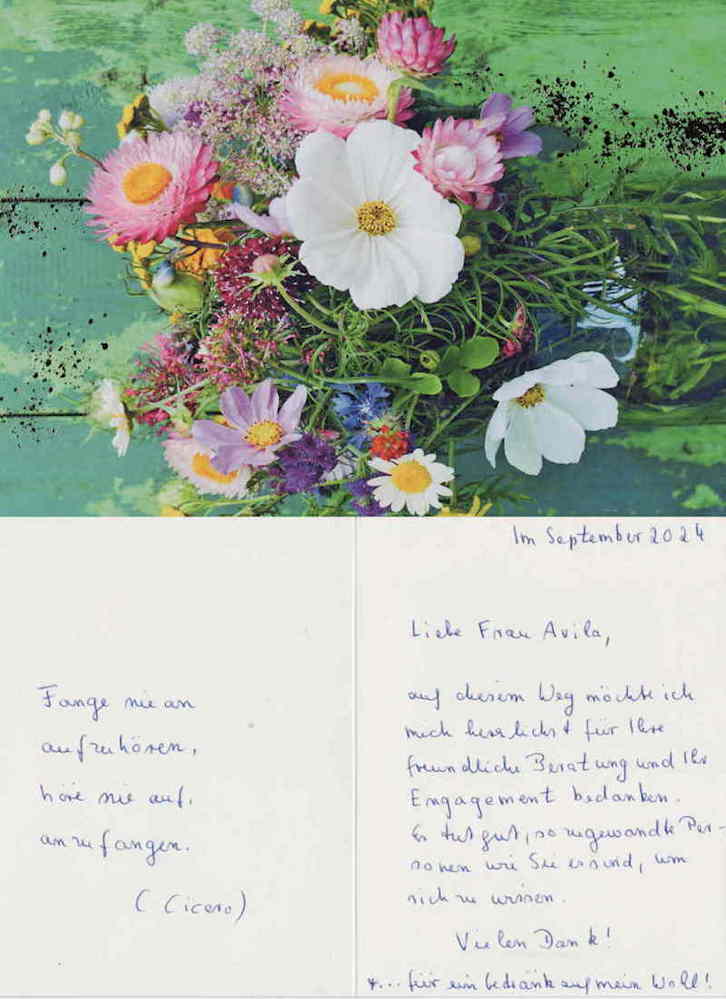 Fange nie an
aufzuhören,
höre nie auf,
anzufangen.
(Cicero)
Im September 2024
Liebe Frau Avila,
auf diesem Weg möchte ich
mich herzlichst für Ihre
freundliche Beratung und Ihr
Engagement bedanken.
Es tut gut, so zugewandte Per-
sonen wie Sie es sind, um
sich zu wissen.
Vielen Dank!
*... für ein Getränk auf mein Wohl!